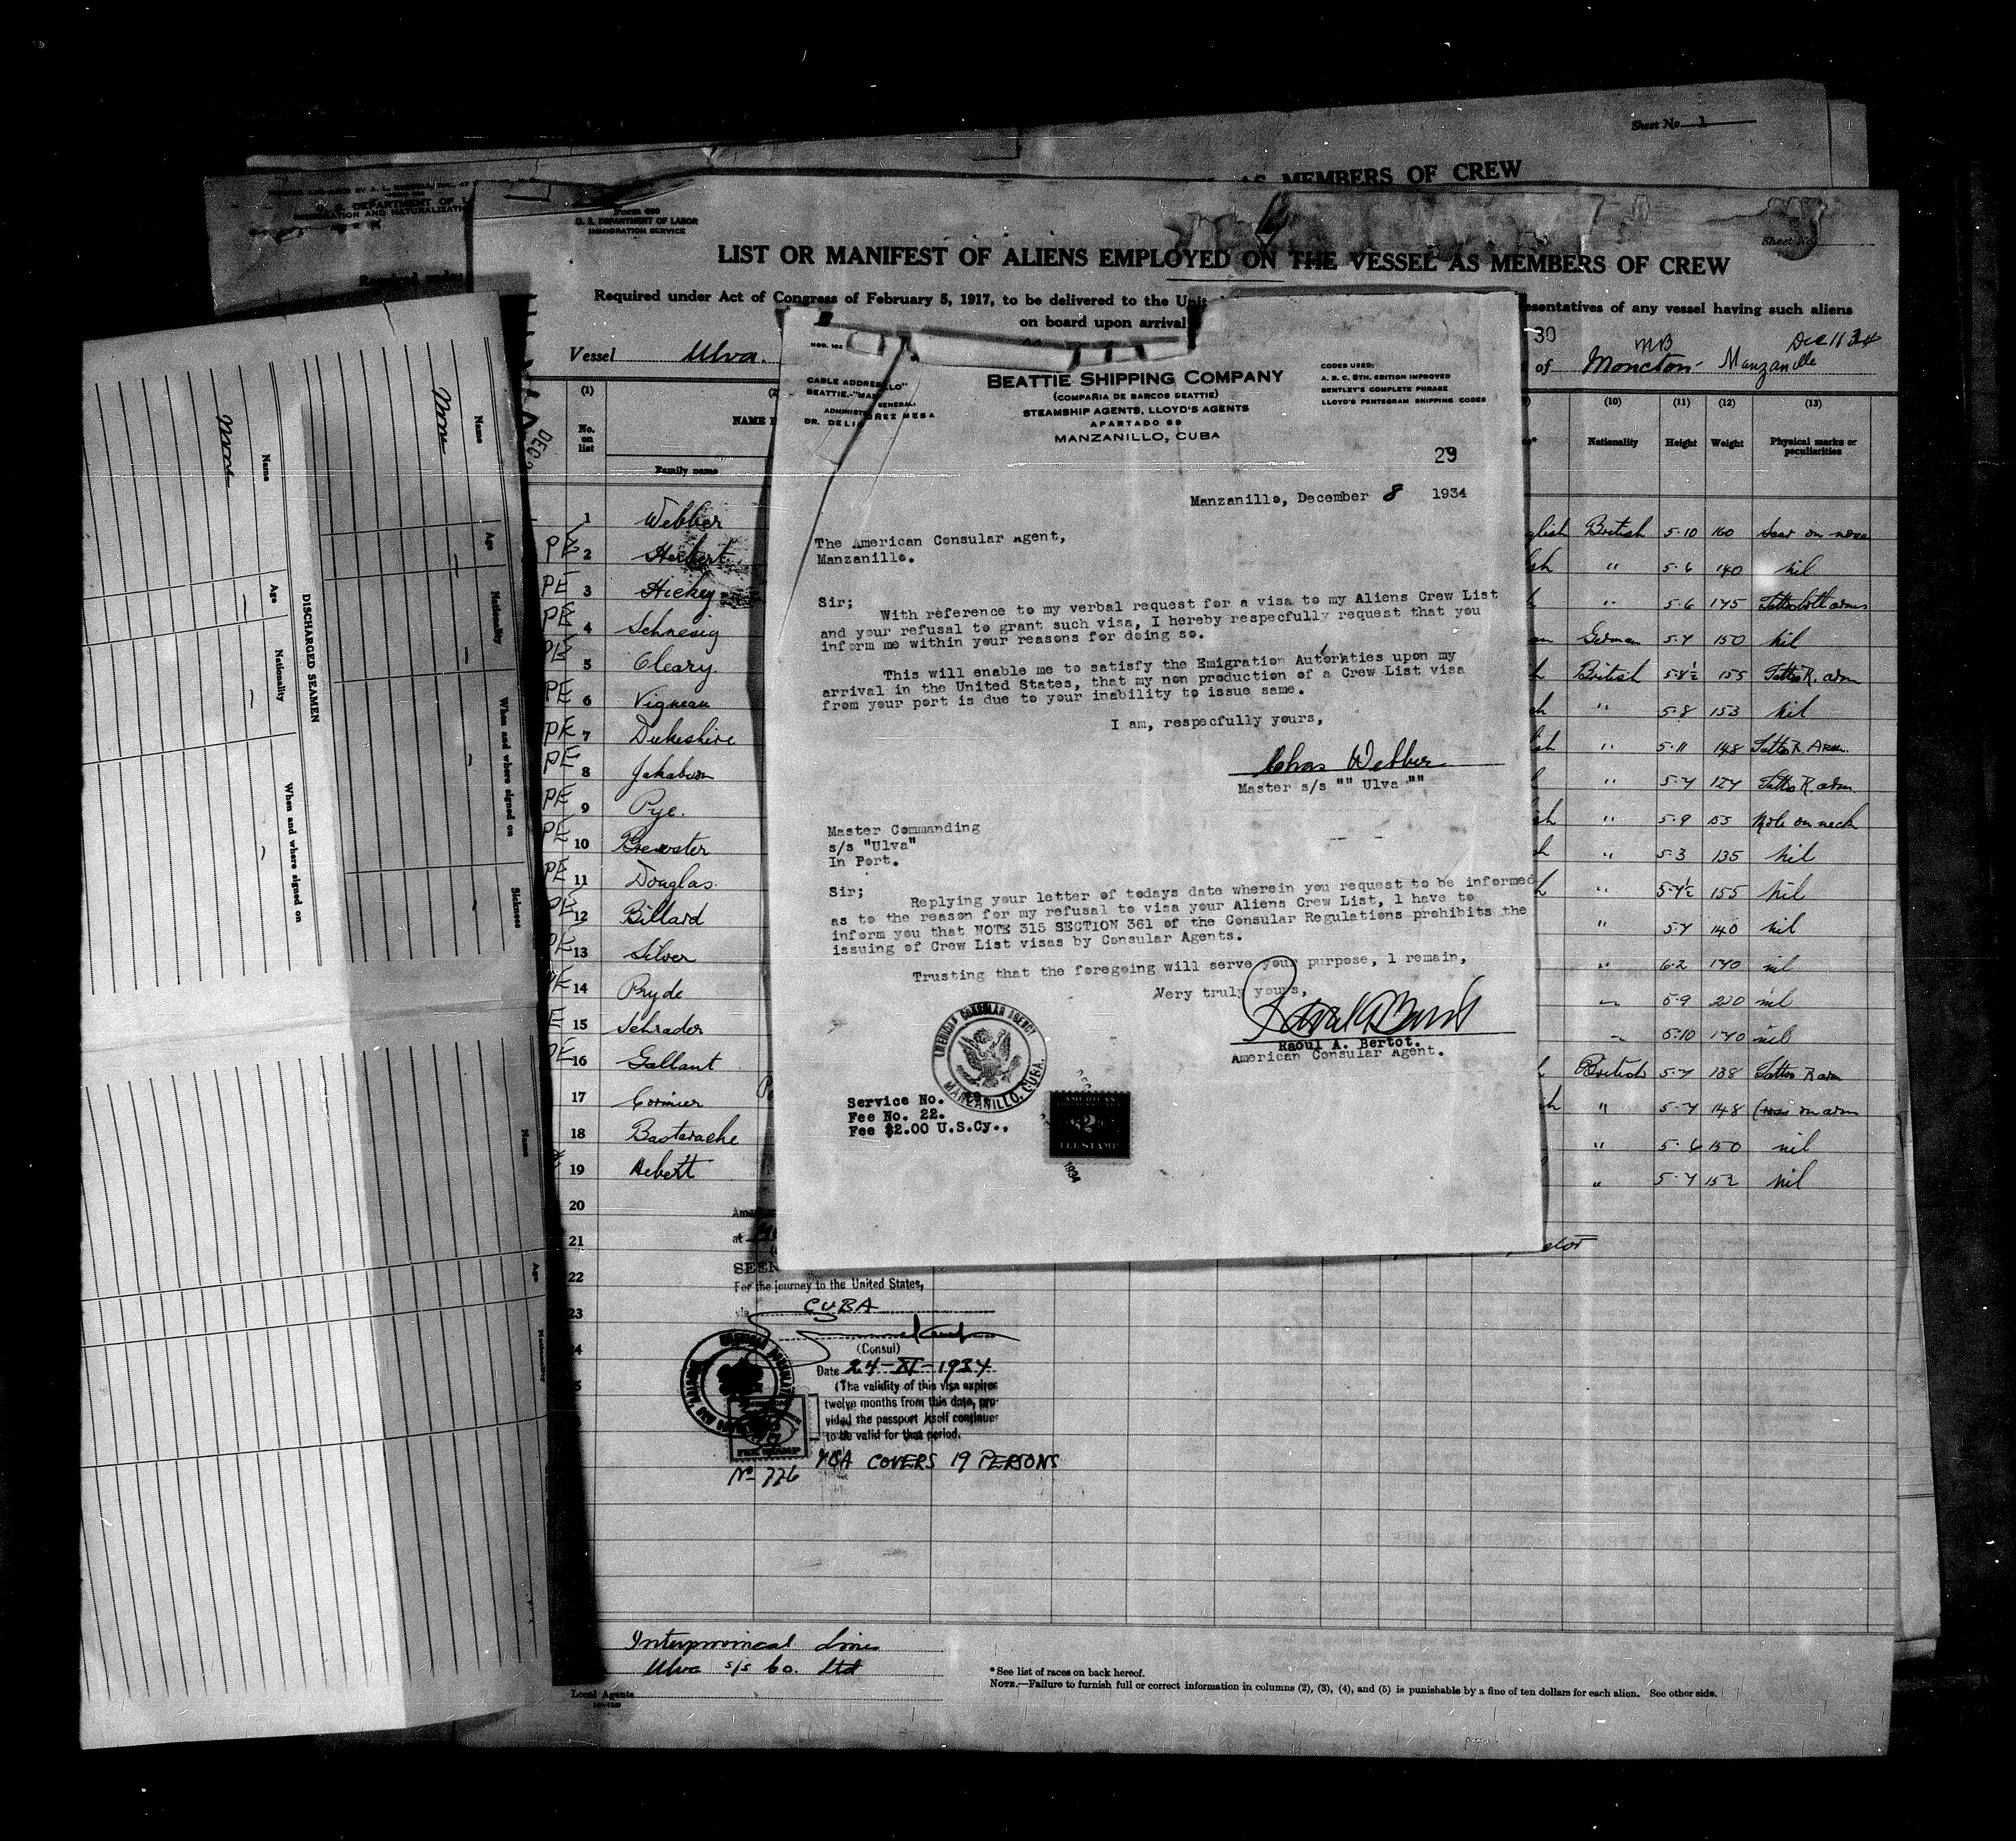 Sheet No. 1
AS MEMBERS OF CREW
U. S. DEPARTMENT OF L
IMMIGRATION AND NATURALIZATI
Form 680
U. S. DEPARTMENT OF LABOR
IMMIGRATION SERVICE
Sheet No.
LIST OR MANIFEST OF ALIENS EMPLOYED ON THE VESSEL AS MEMBERS OF CREW
Required under Act of Congress of February 5, 1917, to be delivered to the Unit
esentatives of any vessel having such aliens
on board upon arrival
Vessel Ulva.
30
of Moncton- MB Manzanillo Dec 11 34
(1)
No. on list
NAME I
Family name
(10) (11) (12) (13)
Nationality Height Weight Physical marks or peculiarities
1 Webber glish British 5-10 160 Scar on nose
PE 2 Herbert sh " 5-6 140 nil
PE 3 Hickey " 5-6 145 Tattoo both arms
PE 4 Schnesig German 5-7 150 nil
PE 5 Cleary British 5-8½ 155 Tattoo R. arm
PE 6 Vigneau " 5-8 153 nil
PE 7 Dukeshire " 5-11 148 Tattoo R Arm.
PE 8 Jakabson " 5-7 127 Tattoo R. arm
PE 9 Pye. " 5-9 153 Mole on neck
PE 10 Brewster " 5-3 135 nil
PE 11 Douglas. 5-7½ 155 nil
PE 12 Billard " 5-7 140 nil
PE 13 Silver " 6-2 170 nil
PE 14 Pryde 5-9 200 nil
E 15 Schrader 5-10 170 nil
PE 16 Gallant British 5-7 138 Tattoo R arm
17 Cormier " 5-7 148 on arm
18 Bastarache " 5-6 150 nil
19 Hebert " 5-7 152 nil
20
21
22
23
CABLE ADDRES
BEATTIE-"MAN
GENERAL:
ADMINIST
DR. DELI
ÑEZ MESA
BEATTIE SHIPPING COMPANY
(COMPAÑIA DE BARCOS BEATTIE)
STEAMSHIP AGENTS, LLOYD'S AGENTS
APARTADO 69
MANZANILLO, CUBA
CODES USED:
A. B. C. 5TH. EDITION IMPROVED
BENTLEY'S COMPLETE PHRASE
LLOYD'S PENTEGRAM SHIPPING CODES
29
Manzanillo, December 8 1934
The American Consular Agent,
Manzanillo.
Sir;
With reference to my verbal request for a visa to my Aliens Crew List
and your refusal to grant such visa, I hereby respecfully request that you
inform me within your reasons for doing so.
This will enable me to satisfy the Emigration Autorhties upon my
arrival in the United States, that my non production of a Crew List visa
from your port is due to your inability to issue same.
I am, respecfully yours,
Chas Webber
Master s/s "" Ulva ""
Master Commanding
s/s "Ulva"
In Port.
Sir;
Replying your letter of todays date wherein you request to be informed
as to the reason for my refusal to visa your Aliens Crew List, I have to
inform you that NOTE 315 SECTION 361 of the Consular Regulations prohibits the
issuing of Crew List visas by Consular Agents.
Trusting that the foregoing will serve your purpose, I remain,
Very truly yours,
Raoul A. Bertot.
American Consular Agent.
AMERICAN CONSULAR AGENCY
MANZANILLO, CUBA.
Service No.
Fee No. 22.
Fee $2.00 U.S.Cy.,
AMERICAN
$2
FEE STAMP
1934
at
SEEN
For the journey to the United States,
via CUBA
(Consul)
Date 24-XI-1934
(The validity of this visa expires
twelve months from this date, pro-
vided the passport itself continues
to be valid for that period.
VISA COVERS 19 PERSONS
FEE STAMP
No 776
Interprovincal Line
Ulva s/s Co. Ltd
Local Agents
* See list of races on back hereof.
NOTE.—Failure to furnish full or correct information in columns (2), (3), (4), and (5) is punishable by a fine of ten dollars for each alien. See other side.
DISCHARGED SEAMEN
Name Age Nationality When and where signed on
None
Name Age Nationality When and where signed on Sickness
None
Name Age Nationality